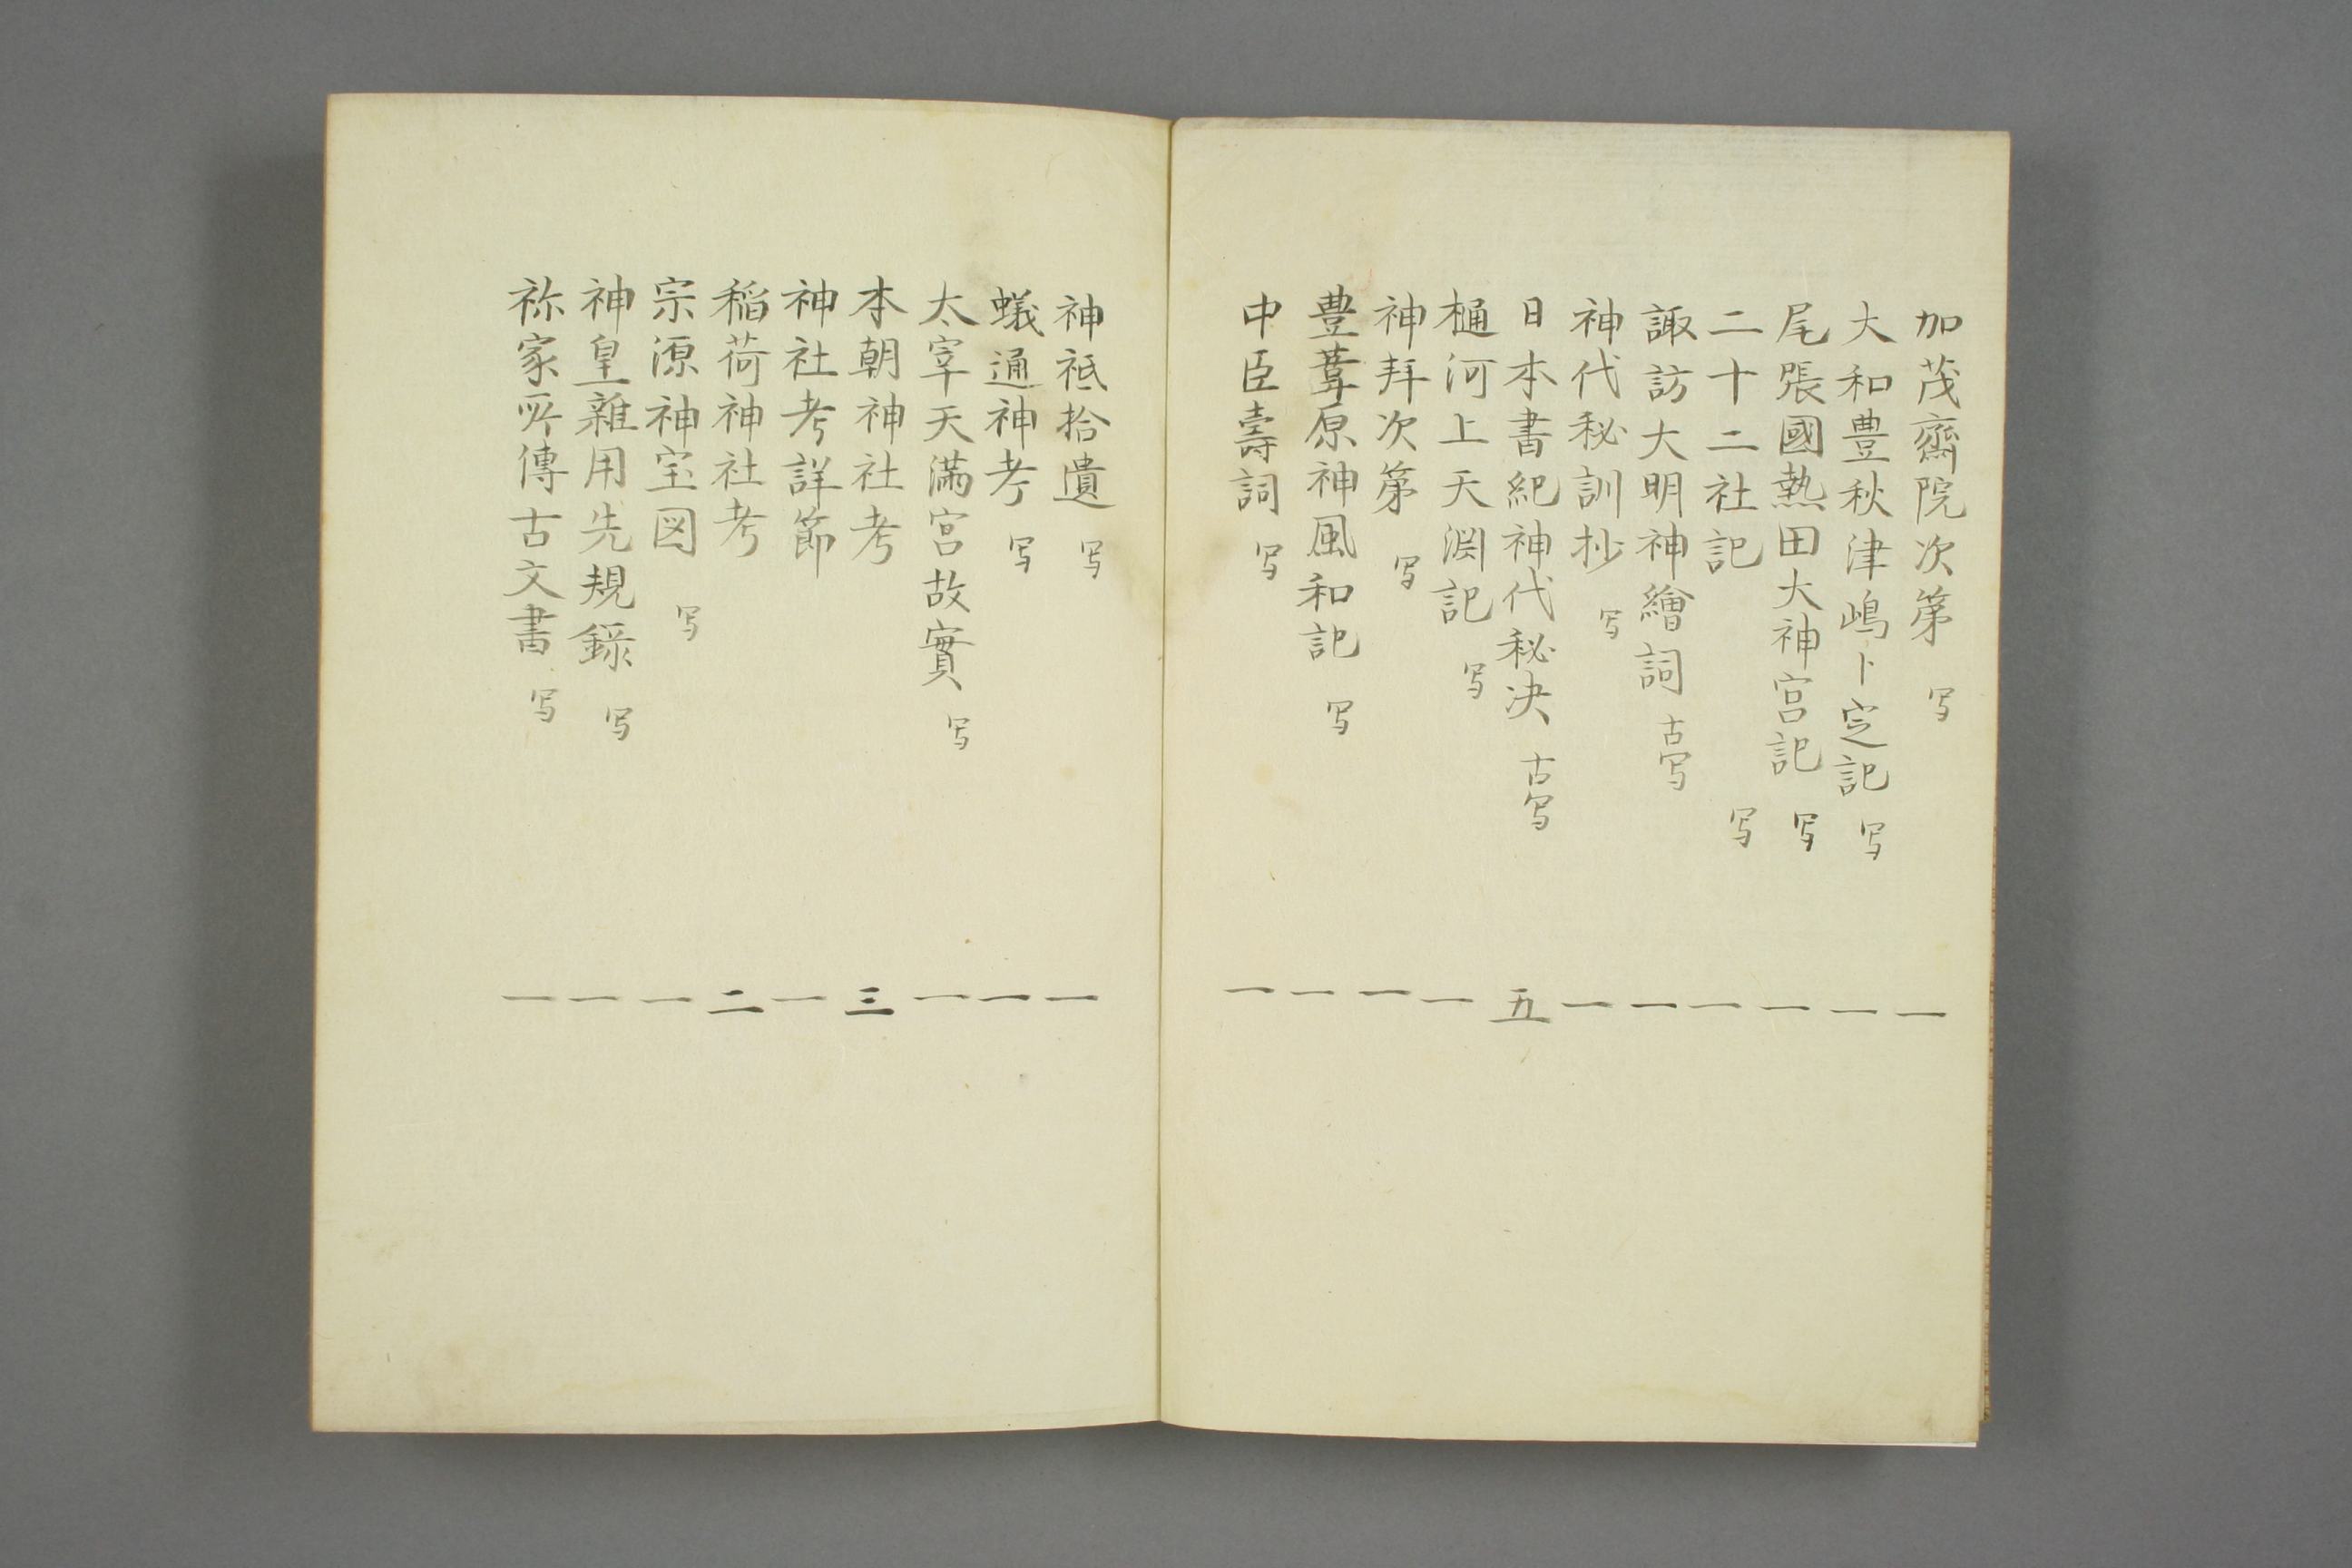 加茂齋院次第 写 一
大和豊秋津嶋卜定記 写 一
尾張國熱田大神宮記 写 一
二十二社記 写 一
諏訪大明神繪詞 古写 一
神代秘訓抄 写 一
日本書紀神代秘决 古写 五
樋河上天淵記 写 一
神拜次第 写 一
豊葦原神風和記 写 一
中臣壽詞 写 一
神祇拾遺 写 一
蟻通神考 写 一
太宰天滿宮故實 写 一
本朝神社考 三
神社考詳節 一
稲荷神社考 二
宗源神宝図 写 一
神皇雜用先規録 写 一
祢家所傳古文書 写 一